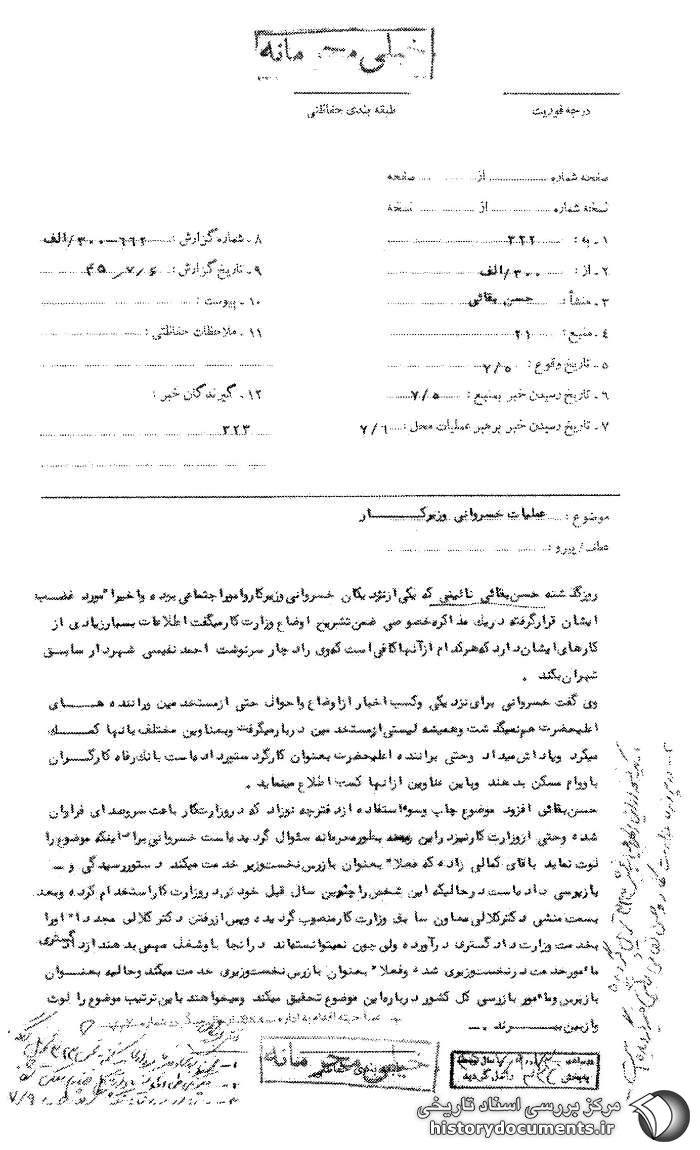 خیلی محرمانه
درجه فوریت
طبقه بندی حفاظتی
صفحه شماره از صفحه
نسخه شماره از نسخه
۱ ـ به : ۳۲۲
۲ ـ از : ۳۰۰/الف
۳ ـ منشأ : حسن بقائی
۴ ـ منبع : ۲۱
۵ ـ تاریخ وقوع : ۷/۵
۶ ـ تاریخ رسیدن خبر بمنبع : ۷/۵
۷ ـ تاریخ رسیدن خبر برهبر عملیات محل : ۷/۶
۸ ـ شماره گزارش : ۶۶۲ـ۳۰۰/الف
۹ ـ تاریخ گزارش : ۴۵/۷/۶
۱۰ ـ پیوست :
۱۱ ـ ملاحظات حفاظتی :
۱۲ ـ گیرندگان خبر :
۳۲۳
موضوع : عملیات خسروانی وزیرکار
عطف / پیرو :
روزگذشته حسن بقائی نائینی که یکی ازنزدیکان خسروانی وزیرکارواموراجتماعی بوده واخیرا" مورد غضب
ایشان قرارگرفته دریک مذاکره خصوصی ضمن تشریح اوضاع وزارت کارمیگفت اطلاعات بسیارزیادی از
کارهای ایشان دارد که هرکدام ازآنهاکافی است که وی رادچار سرنوشت احمد نفیسی شهردار سابق
تهران بکند .
وی گفت خسروانی برای نزدیکی وکسب اخبار ازاوضاع واحوال حتی ازمستخدمین وراننده های
اعلیحضرت هم نمیگذشت وهمیشه لیستی ازمستخدمین دربارمیگرفت وبعناوین مختلف بآنها کمک
میکرد وپاداش میداد وحتی براننده اعلیحضرت بعنوان کارگردستورداده است بانک رفاه کارگران
باووام مسکن بدهند وباین عناوین ازآنها کسب اطلاع مینماید .
حسن بقائی افزود موضوع چاپ وسوء استفاده ازدفترچه نوزاد که دروزارت کار باعث سروصدای فراوان
شده وحتی ازوزارت کارنیزدراین زمینه بطورمحرمانه سئوال گردیده است خسروانی برای اینکه موضوع را
لوث نماید باقای کمالی زاده که فعلا" بعنوان بازرس نخست وزیر خدمت میکند دستوررسیدگی و
بازپرسی داده است درحالیکه این شخص را چندین سال قبل خودش دروزارت کاراستخدام کرده وبعد
بسمت منشی دکترکلالی معاون سابق وزارت کارمنصوب گردیده وپس ازرفتن دکتر کلالی مجددا" اورا
بخدمت وزارت دادگستری درآورده ولی چون نمیتوانسته اند درآنجا باوشغل مهمی بدهند ازدادگستری
مأمورخدمت درنخست وزیری شده وفعلا" بعنوان بازرس نخست وزیری خدمت میکند وحالیه بعنوان
بازپرس ومأمور بازرسی کل کشور درباره این موضوع تحقیق میکند ومیخواهند باین ترتیب موضوع را لوث
وازبین ببرند .
خیلی محرمانه
طبقه بندی حفاظتی
مرکز بررسی اسناد تاریخی
historydocuments.ir